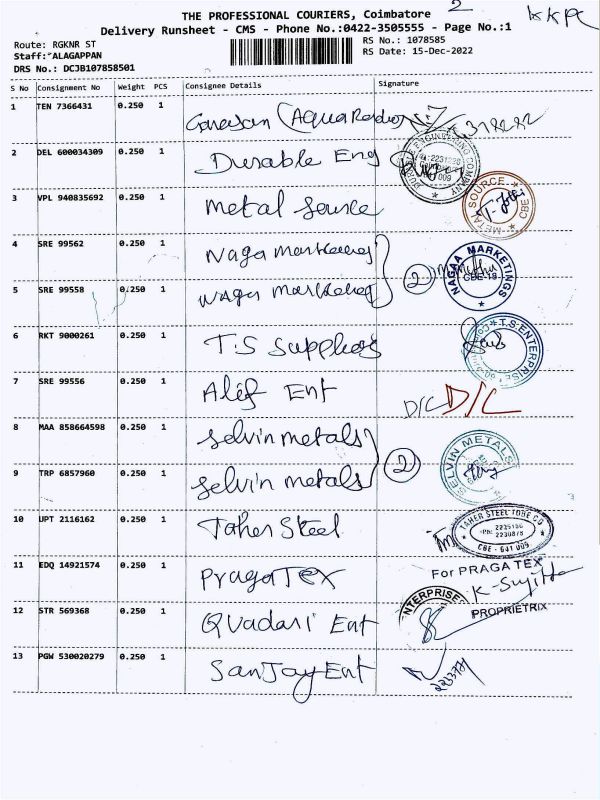 2
KKPC
THE PROFESSIONAL COURIERS, Coimbatore
Delivery Runsheet - CMS - Phone No.:0422-3505555 - Page No.:1
Route: RGKNR ST
RS No.: 1078585
Staff: ALAGAPPAN
RS Date: 15-Dec-2022
DRS No.: DCJB107858501
S No Consignment No Weight PCS Consignee Details Signature
1 TEN 7366431 0.250 1 Ganesan (Aqua
2 DEL 600034309 0.250 1 Durable Eng
3 VPL 940835692 0.250 1 Metal Source METAL SOURCE CBE
4 SRE 99562 0.250 1 Naga Marketing
2 NAGAA MARKETINGS CBE-18
5 SRE 99558 0.250 1 Naga Marketing
6 RKT 9000261 0.250 1 T.S Suppliers T.S.ENTERPRISE
7 SRE 99556 0.250 1 Alef Ent D/C D/L
8 MAA 858664598 0.250 1 Selvin metals
2 SELVIN METALS
9 TRP 6857960 0.250 1 Selvin metals
10 UPT 2116162 0.250 1 Taher Steel TAHER STEEL TUBE CO
CBE - 641 009
11 EDQ 14921574 0.250 1 Praga TEX For PRAGA TEX
K. Sujitha
PROPRIETRIX
12 STR 569368 0.250 1 Quadari Ent
13 PGW 530020279 0.250 1 Sanjay Ent